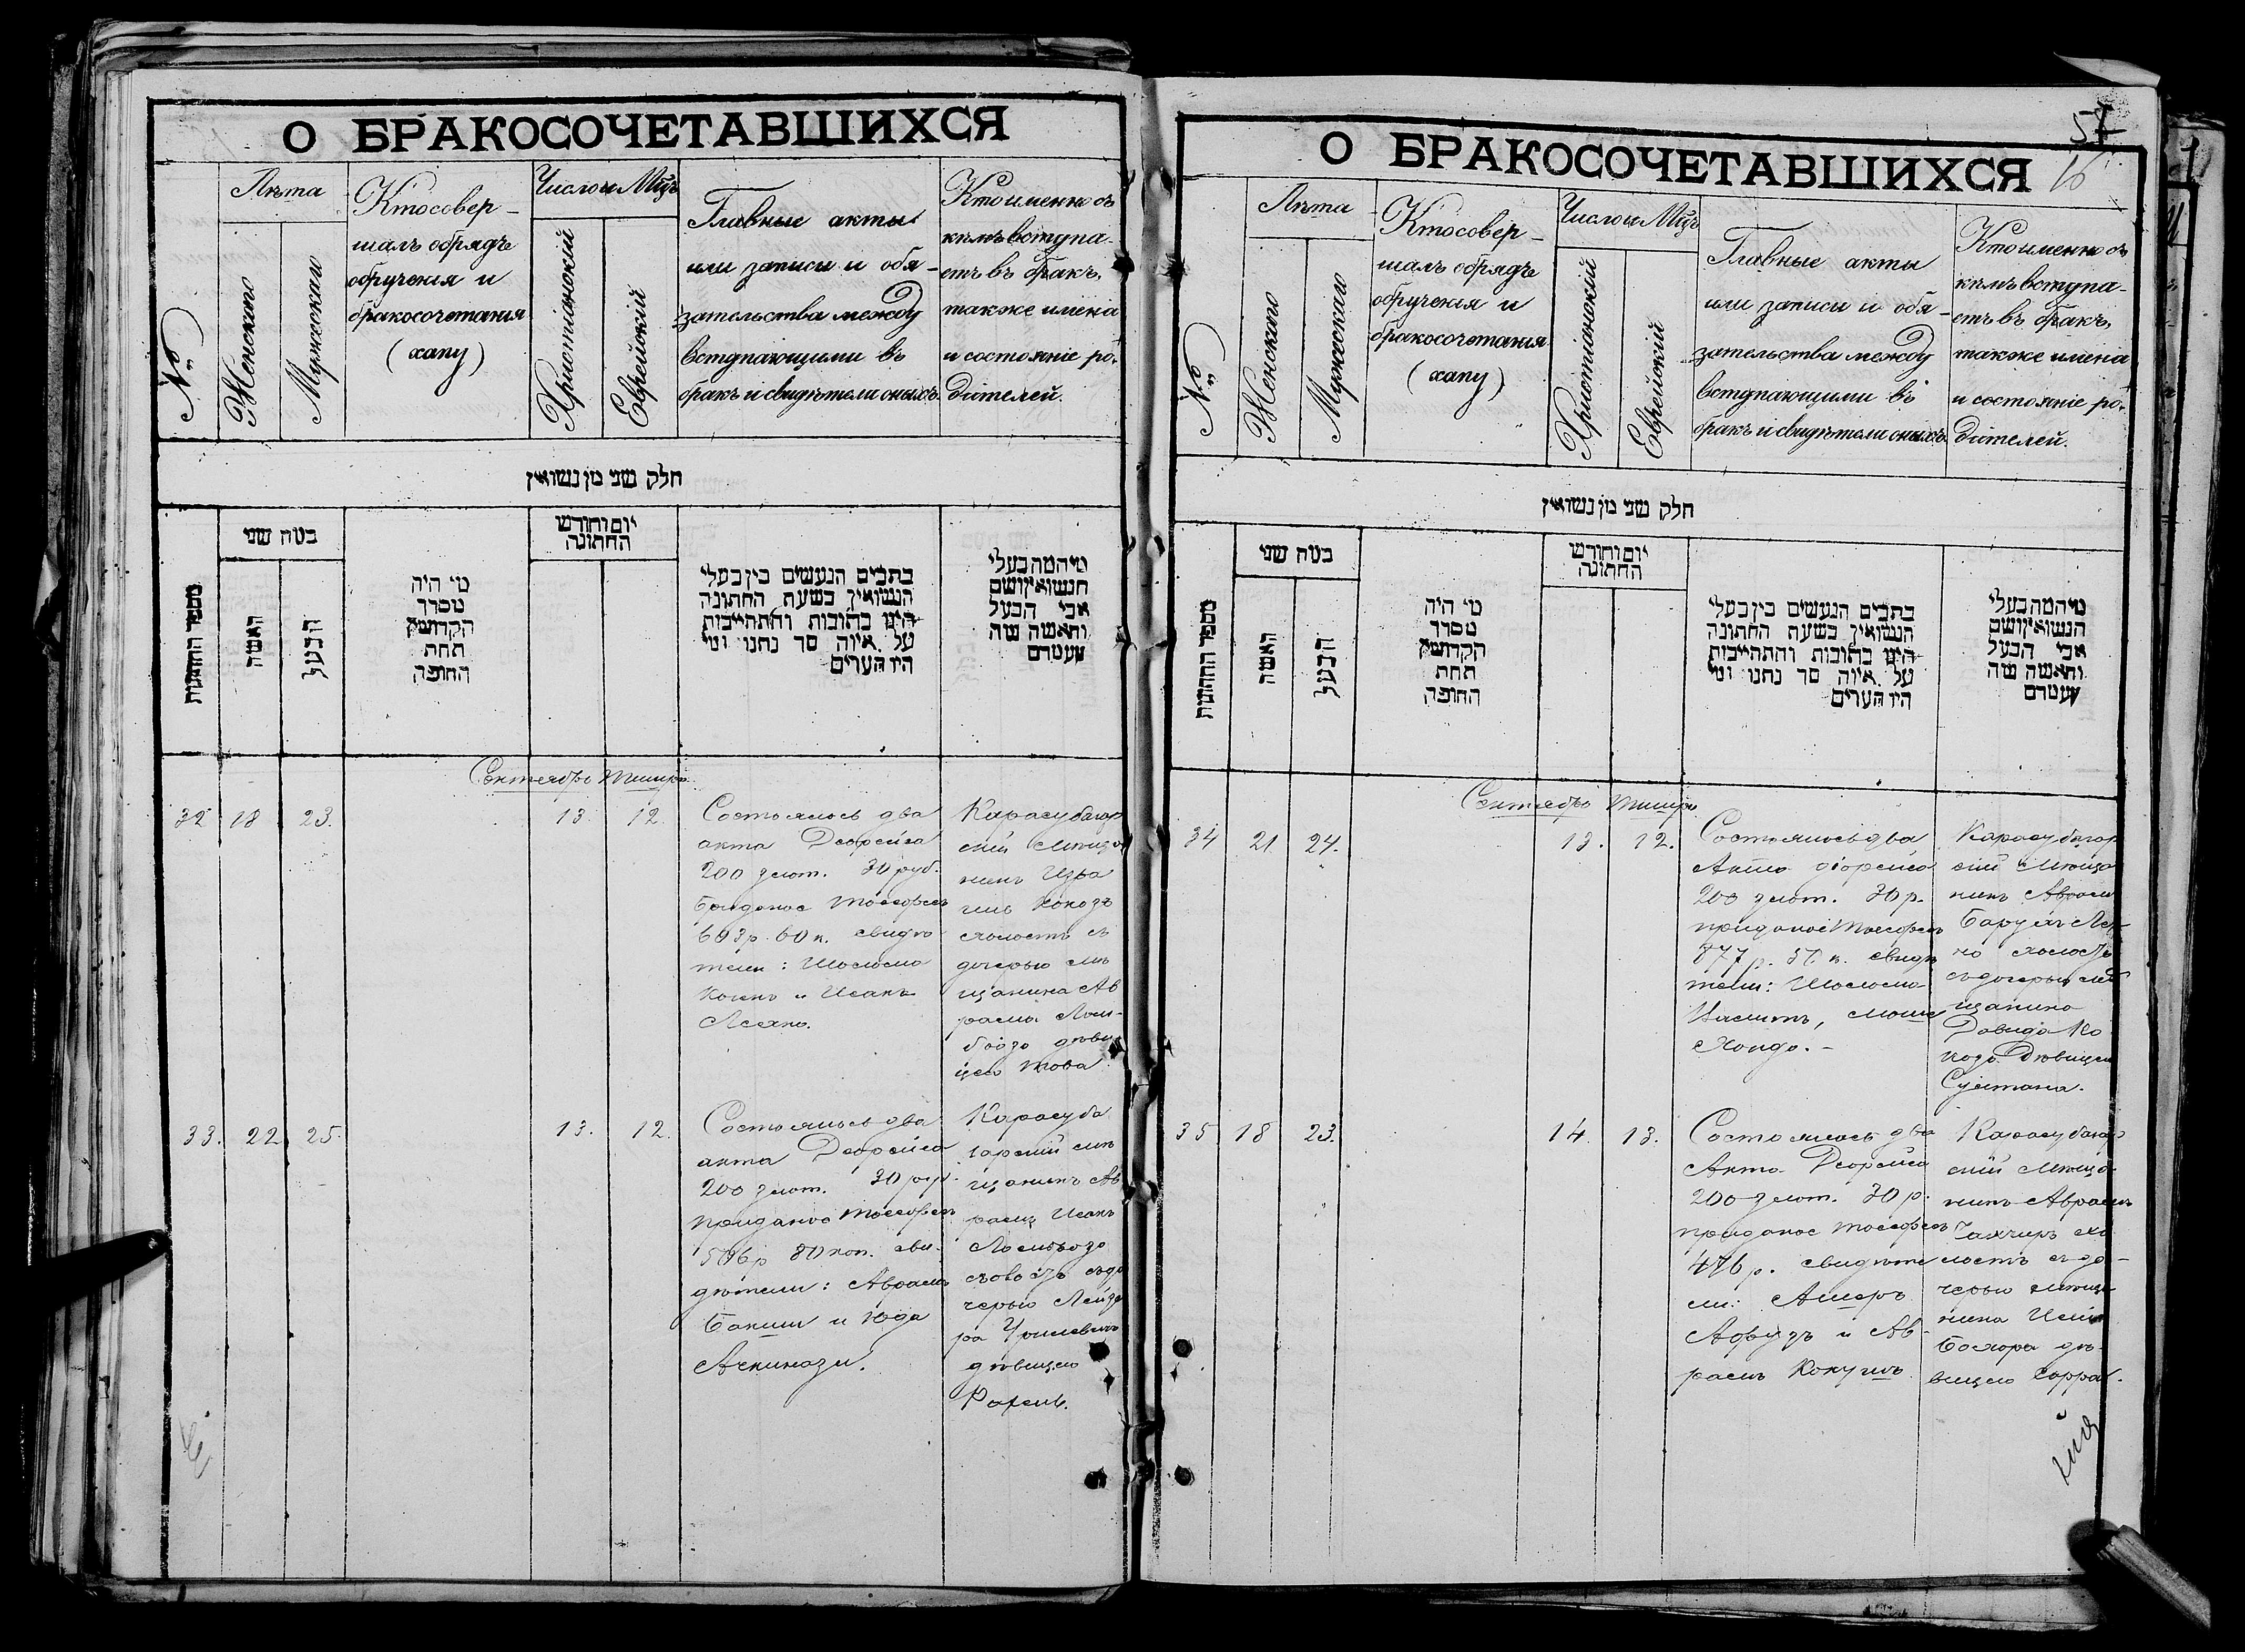 О БРАКОСОЧЕТАВШИХСЯ
№
Лѣта
Женскаго
Мужескаго
Кто совер-
шалъ обрядъ
обрученія и
бракосочетанія
(хапу)
Число и Мѣц
Христіанскій
Еврейскій
Главные акты
или записи и обя-
зательства между
вступающими въ
бракъ и свидѣтели оныхъ.
Кто именно съ
кѣмъ вступа-
етъ въ бракъ,
также имена
и состояніе ро-
дителей.
חלק שני מן נשואין
מספר החתונות
כמה שני
האשה
הבעל
מי היה
מסדר
הקדושין
תחת
החופה
יום וחודש
החתונה
כתבים הנעשים בין בעלי
הנשואין בשעת החתונה
היינו כתובות והתחייבות
על איזה סך נתנו ומי
היו העדים
מי המה בעלי
הנשואין ושם
אבי הבעל
והאשה ומה
מעמדם
Сентябрь Тишри
32 18 23. 13. 12.
Состоялось два
акта Деорейса
200 злот. 30 руб.
Приданое Тоссефесъ
603 р. 60 к. свидѣ
тели: Шоломо
Коенъ и Исакъ
Карасубазар
скій мѣща
нинъ Изра
иль Кокозъ
холостъ съ
дочерью мѣ
щанина Ав
рама
дѣви
цею Това.
33. 22. 25. 13. 12.
Состоялось два
акта Деорейса
200 злот. 30 руб.
приданое Тоссефесъ
596 р 80 коп. сви-
дѣтели: Авраамъ
Бакши и Юда
Ашкинази.
Карасуба
зарскій мѣ
щанинъ Ав
рамъ Исакъ
съ до
черью Лейзе
ра
дѣвицею
Рахель.
О БРАКОСОЧЕТАВШИХСЯ
57
16
№
Лѣта
Женскаго
Мужескаго
Кто совер-
шалъ обрядъ
обрученія и
бракосочетанія
(хапу)
Число и Мѣц
Христіанскій
Еврейскій
Главные акты
или записи и обя-
зательства между
вступающими въ
бракъ и свидѣтели оныхъ.
Кто именно съ
кѣмъ вступа-
етъ въ бракъ,
также имена
и состояніе ро-
дителей.
חלק שני מן נשואין
מספר החתונות
כמה שני
האשה
הבעל
מי היה
מסדר
הקדושין
תחת
החופה
יום וחודש
החתונה
כתבים הנעשים בין בעלי
הנשואין בשעת החתונה
היינו כתובות והתחייבות
על איזה סך נתנו ומי
היו העדים
מי המה בעלי
הנשואין ושם
אבי הבעל
והאשה ומה
מעמדם
Сентябрь Тишри
34 21. 24. 13. 12.
Состоялось два
Акта Деорейса
200 злот. 30 р.
приданое Тоссефесъ
877 р. 50 к. свидѣ
тели: Шоломо
Моше
Хондо.-
Карасубазар
скій мѣща
нинъ Авраам
Барухъ
холостъ
съ дочерью мѣ
щанина
Давида Ко
коза Дѣвицею
Султана.
35 18 23. 14. 13.
Состоялось два
Акта Деорейса
200 злот. 30 р.
приданое Тоссефесъ
476 р. свидѣте
ли: Ашеръ
и Ав-
рамъ
Карасубазар
скій мѣща-
нинъ Аврамъ
хо
лостъ съ до-
черью мѣща
нина
Бохора дѣ-
вицею Сарра.